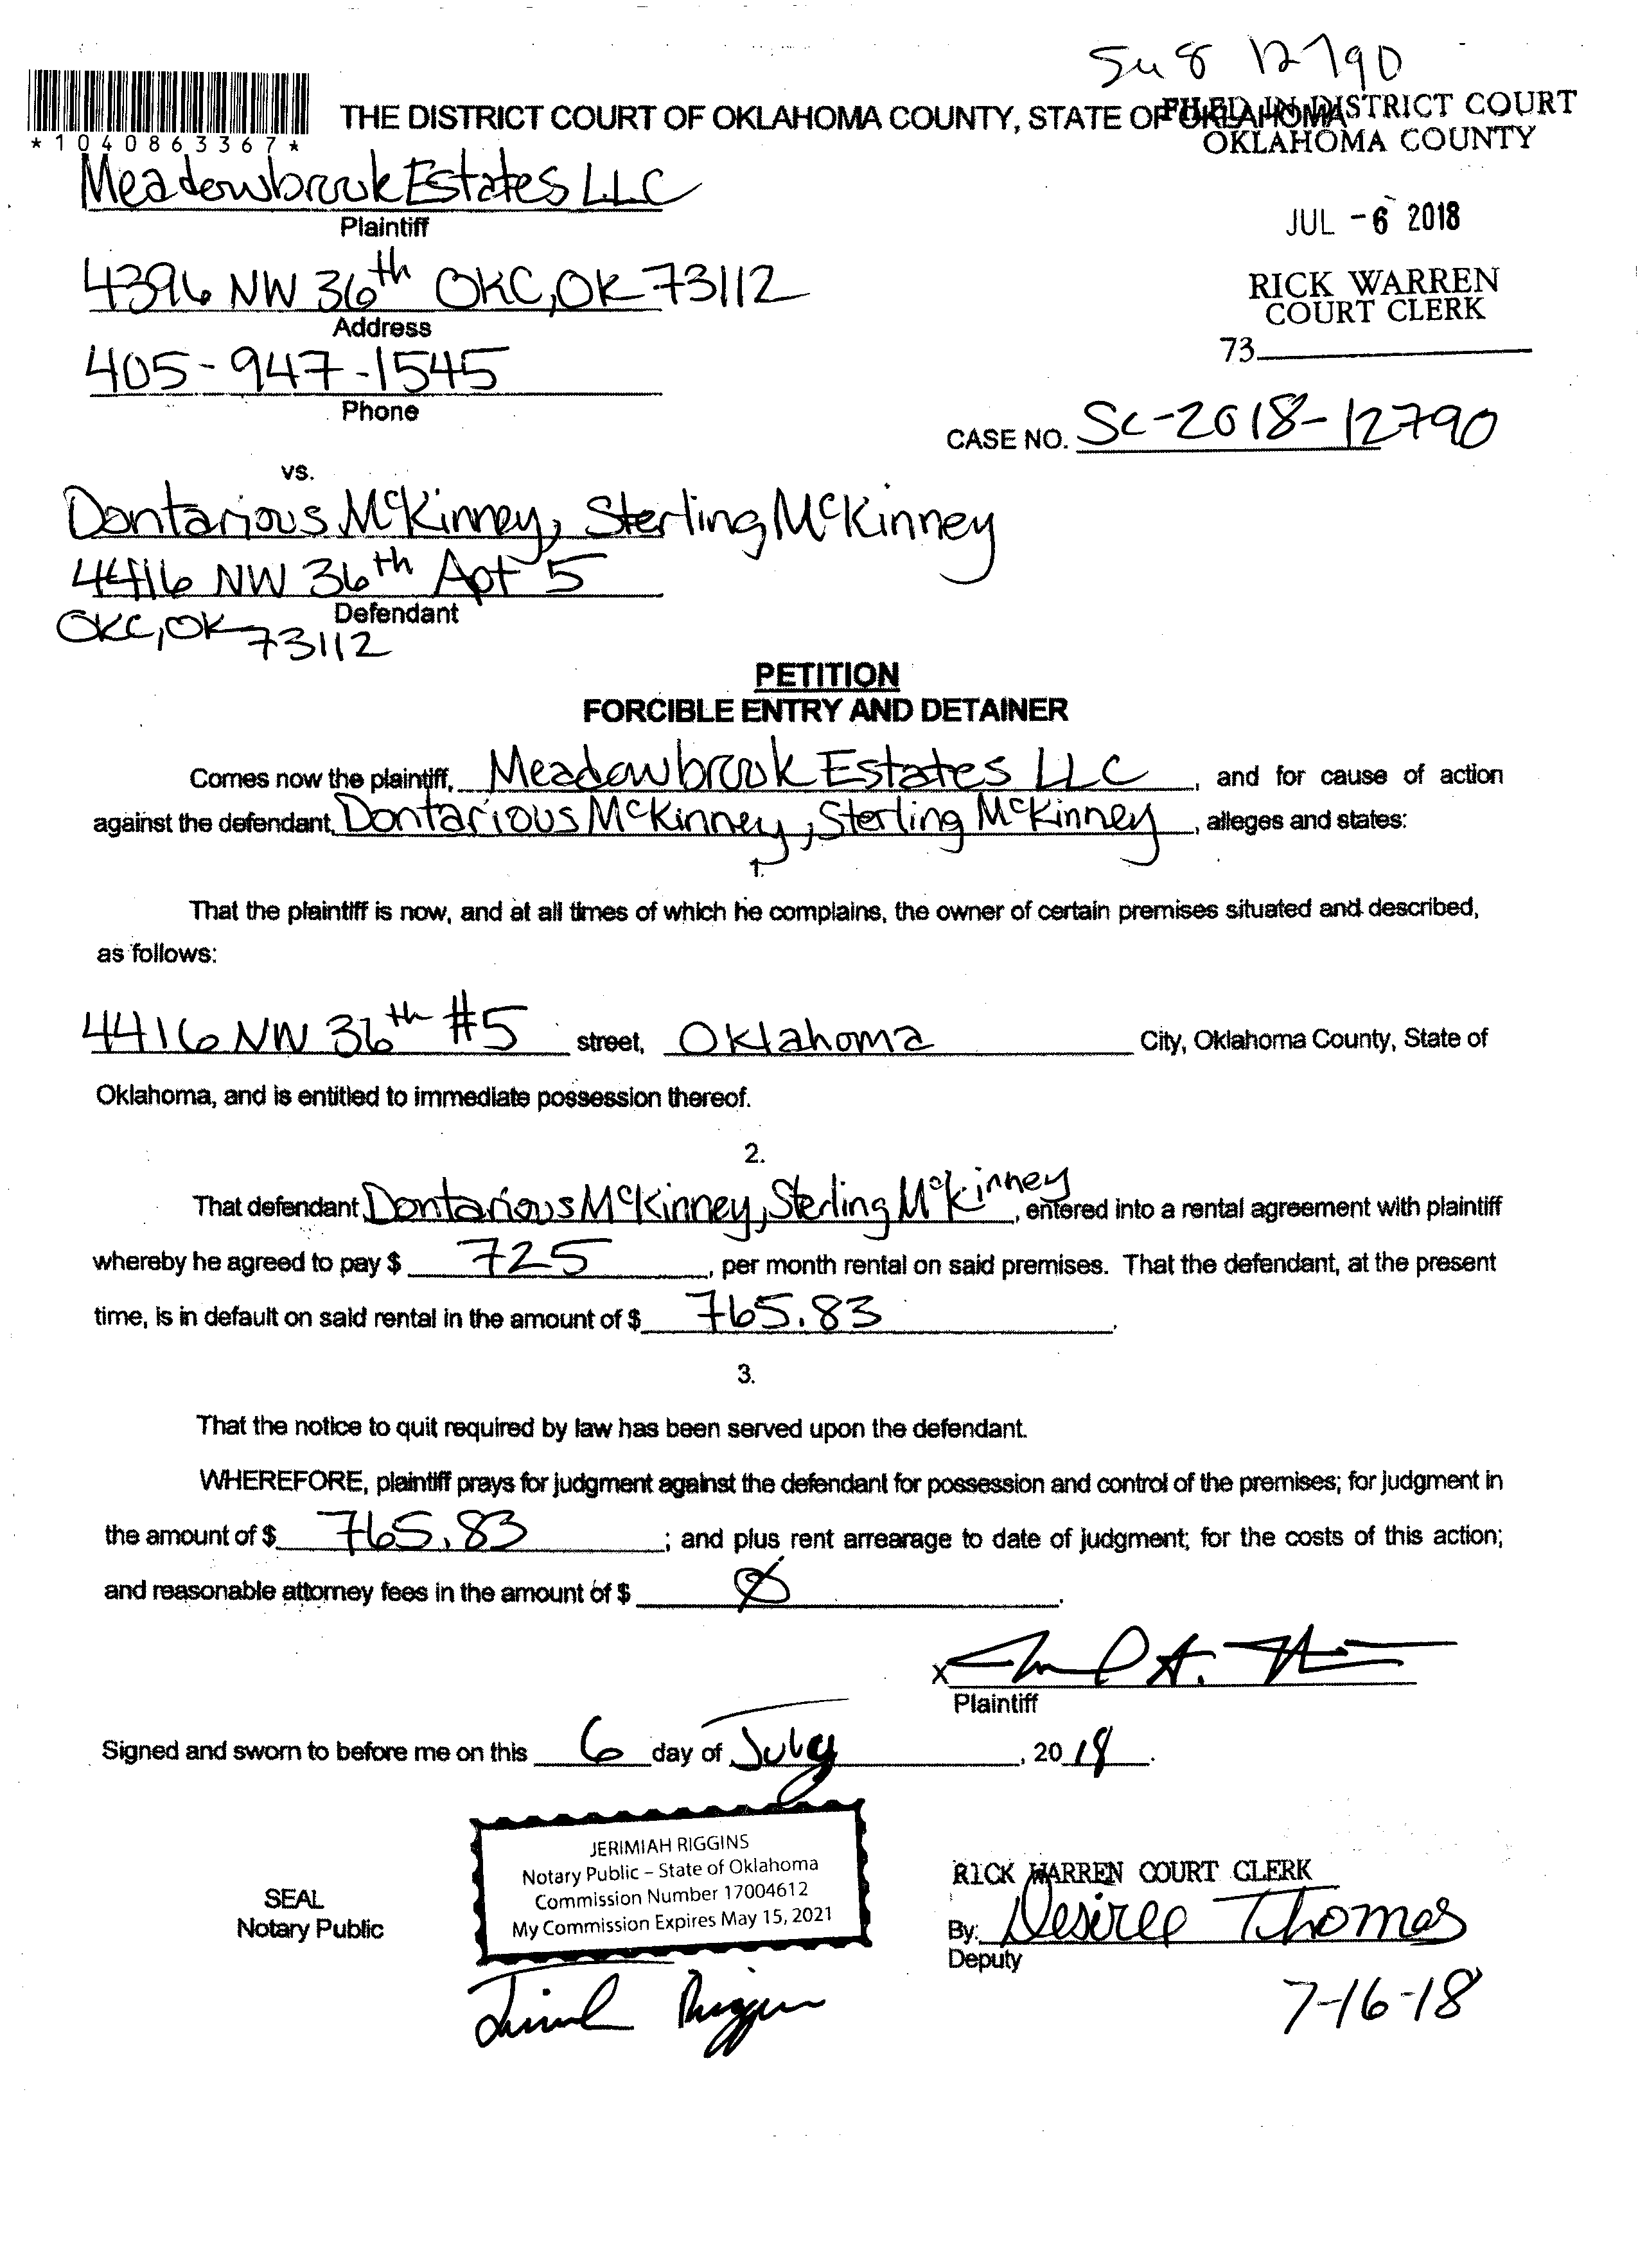 Su 8 12790
THE DISTRICT COURT OF OKLAHOMA COUNTY, STATE OF OKLAHOMA
FILED IN DISTRICT COURT
OKLAHOMA COUNTY
*1040863367*
Meadowbrook Estates LLC
Plaintiff
JUL -6 2018
4396 NW 36th OKC, OK 73112
Address
RICK WARREN
COURT CLERK
73
405-947-1545
Phone
CASE NO. SC-2018-12790
vs.
Dontarious McKinney, Sterling McKinney
4416 NW 36th Apt 5
Defendant
OKC, OK 73112
PETITION
FORCIBLE ENTRY AND DETAINER
Comes now the plaintiff, Meadowbrook Estates LLC, and for cause of action
against the defendant, Dontarious McKinney, Sterling McKinney, alleges and states:
1.
That the plaintiff is now, and at all times of which he complains, the owner of certain premises situated and described,
as follows:
4416 NW 36th #5 street, Oklahoma City, Oklahoma County, State of
Oklahoma, and is entitled to immediate possession thereof.
2.
That defendant Dontarious McKinney, Sterling McKinney, entered into a rental agreement with plaintiff
whereby he agreed to pay $ 725, per month rental on said premises. That the defendant, at the present
time, is in default on said rental in the amount of $ 765.83.
3.
That the notice to quit required by law has been served upon the defendant.
WHEREFORE, plaintiff prays for judgment against the defendant for possession and control of the premises; for judgment in
the amount of $ 765.83; and plus rent arrearage to date of judgment; for the costs of this action;
and reasonable attorney fees in the amount of $ Ø.
X
Plaintiff
Signed and sworn to before me on this 6 day of July, 2018.
JERIMIAH RIGGINS
Notary Public – State of Oklahoma
Commission Number 17004612
My Commission Expires May 15, 2021
SEAL
Notary Public
RICK WARREN COURT CLERK
By: Desiree Thomas
Deputy
7-16-18